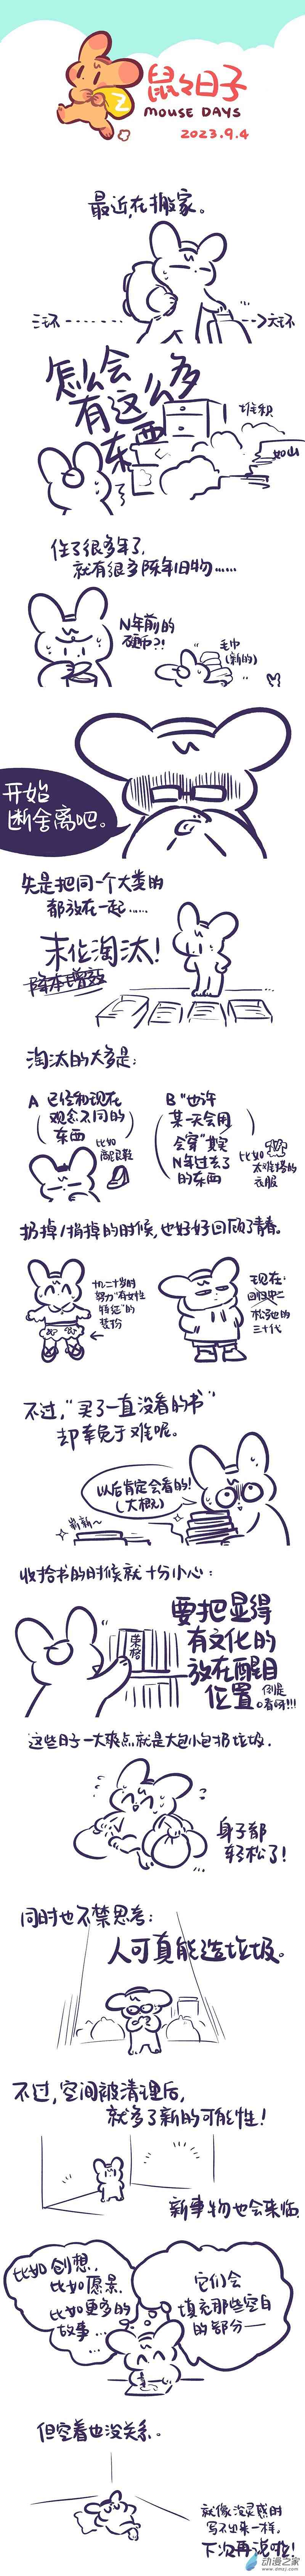 鼠々日子
MOUSE DAYS
2023.9.4
最近,在搬家。
三环
六环
怎么会
有这么多
东西
堆积
如山
住了很多年了,
就有很多陈年旧物……
N年前的
硬币?!
毛巾
(新的)
开始
断舍离吧。
先是把同一个大类的
都放在一起……
末位淘汰!
降本增效
淘汰的大多是:
A 已经和现在
观念不同的
东西
比如
高跟鞋
B "也许
某一天会用
会穿"其实
N年过去了
的东西
比如
太难搭的
衣服
扔掉/捐掉的时候,也好好回顾了青春。
十几二十岁时
努力"有女性
特征"的
装扮
现在:
回归中二
松弛的
三十代
不过,"买了一直没看的书"
却幸免于难呢。
以后肯定会看的!
(大概)
崭新~
收拾书的时候就十分小心:
荣格
要把显得
有文化的
放在醒目
位置
倒是
看呀!!!
这些日子一大爽点就是大包小包扔垃圾.
身子都
轻松了!
同时也不禁思考:
人可真能造垃圾。
不过,空间被清理后,
就多了新的可能性!
新事物也会来临.
比如创想,
比如愿景,
比如更多的
故事…
它们会
填充那些空白
的部分——
但空着也没关系。
就像没灵感时
写不出来一样,
下次再说啦!
动漫之家
www.dmzj.com